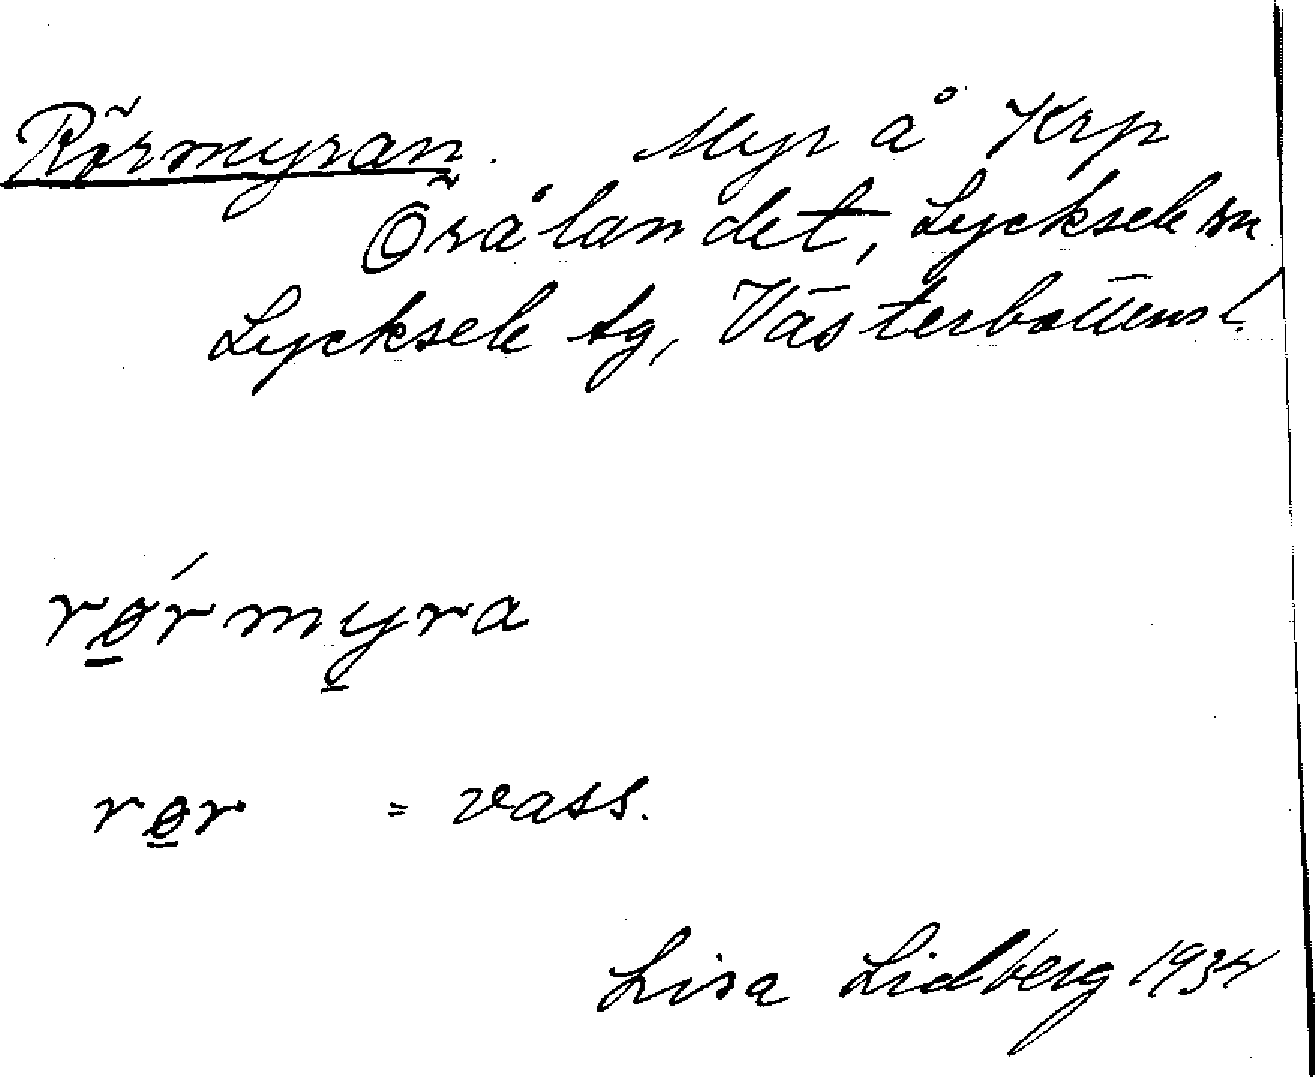 Rörmyran. Myr å Krp
Öråλandet, Lycksele sn
Lycksele tg, Västerbottens l.
rǿ̱rmy̱ra
rø̱r = vass.
Lisa Lidberg 1934